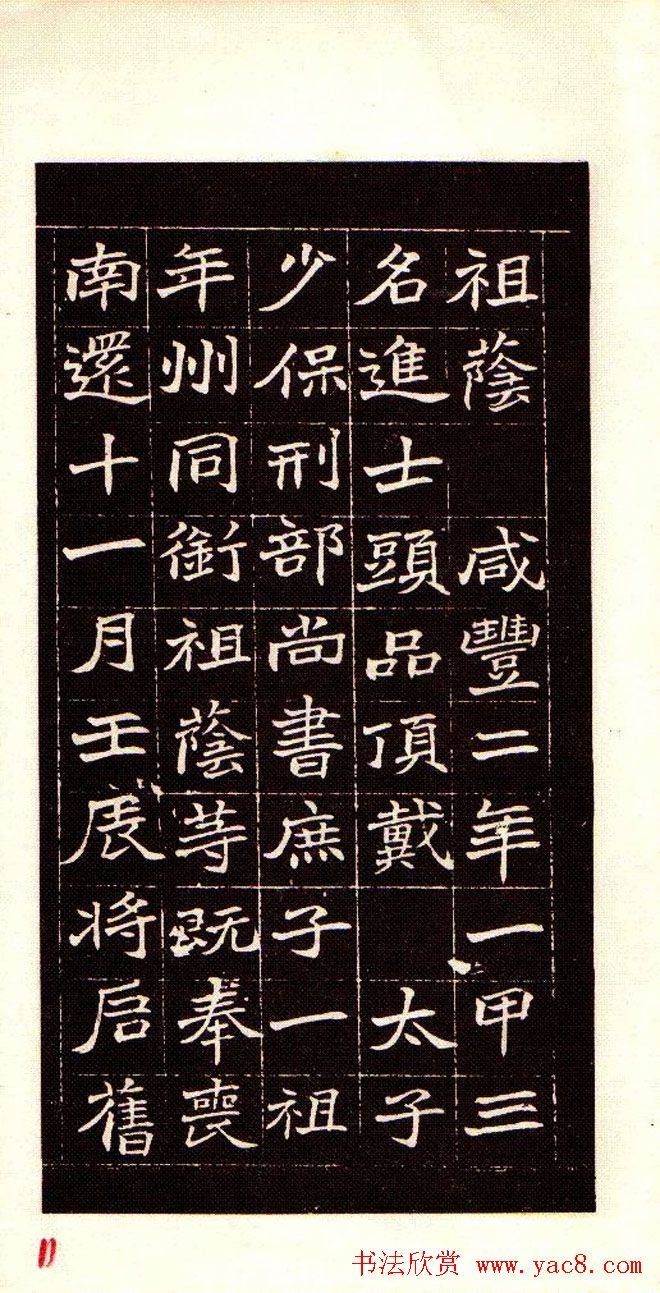 祖蔭　咸豐二年一甲三
名進士頭品頂戴　太子
少保刑部尚書庶子一祖
年州同銜祖蔭䓁既奉喪
南還十一月壬辰將启舊
11
书法欣赏 www.yac8.com